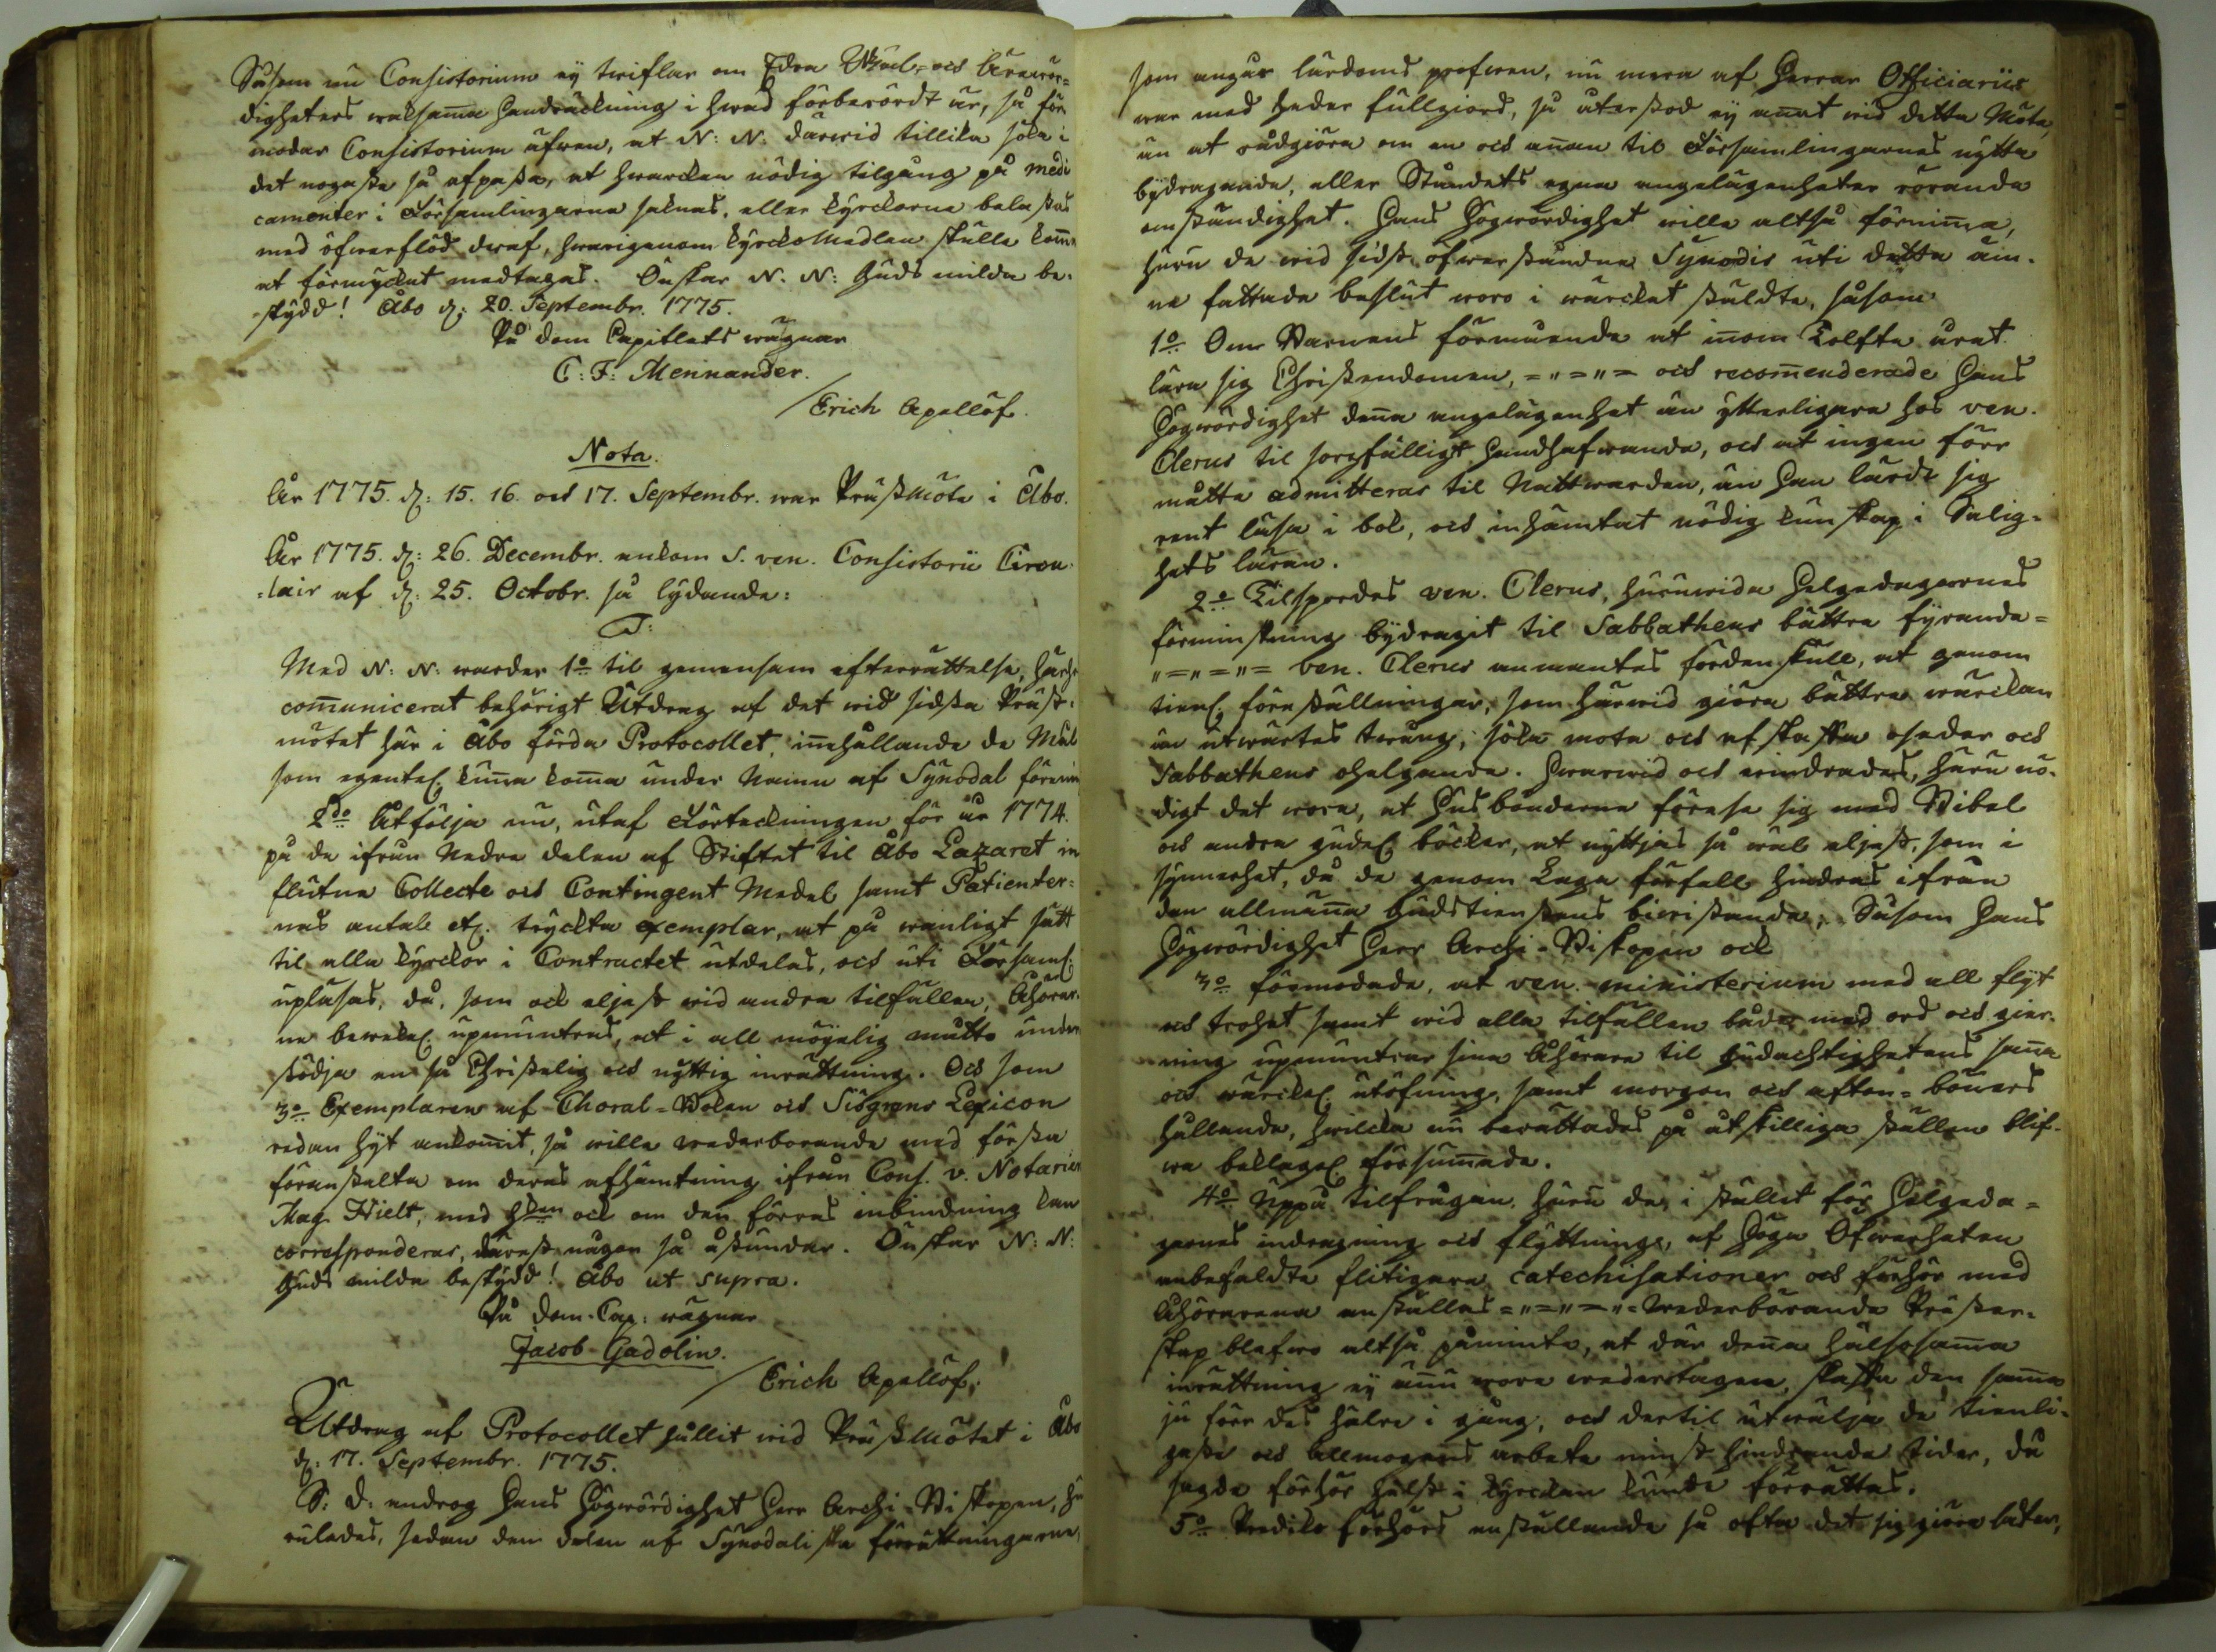 Såsom nu Consistorium ej twiflar om Edra Wäl- och Ärewör-
digheters waksam̅a handräckning i hwad förberördt är, så för
modar Consistorium äfwen, at N: N: därwid tillika söka i
det nogaste så afpassa, at hwarcken nödig tilgång på medi
camenter i Församlingarna saknas, eller kyrckorna belastas
med öfwerflöd deraf, hwarigenom kyrckoMedlen skulle kom̅a
at förmycket medtagas. Önskar N. N: Guds milda be-
skydd! Åbo d: 20. Septembr. 1775.
På Dom Capitlets wägnar
C: F: Mennander.
/Erich Apellöf.
Nota.
År 1775. d: 15. 16. och 17. Septembr. war PrästMöte i Åbo.
År 1775. d: 26. Decembr. ankom S. ven. Consistorii Circu-
-lair af d: 25. Octobr. så lydande:
Med N: N: warder 1o til gemensam efterrättelse,
com̅unicerat behörigt Utdrag af det wid sidsta Präst-
mötet här i Åbo förda Protocollet, in̅ehållande de Mål
som egentel. kun̅a kom̅a under Namn af Synodal
2do Åtfölja nu, utaf Förteckningen för år 1774.
på de ifrån Nedre delen af Stiftet til Åbo Lazaret in
flutne Collecte och Contingent Medel samt Patienter-
nas antal etc. tryckta exemplar, at på wanligt sätt
til alla kyrckor i Contractet utdelas, och uti Församl.
upläsas, då, som ock eljest wid andra tilfällen, Åhörar-
ne bewekel. upmuntras, at i all möjelig måtto under
stödja en så Christelig och nyttig inrättning. Och som
3o Exemplaren af Choral-Boken och Siögrens Lexicon
redan hyt ankom̅it, så wille wederborande med första
föranstalta om deras afhämtning ifrån Cons. v. Notarien
Mag. Hielt, med hwilken ock om den förras inbindning kan
corresponderas, därest någon så åstundar. Önskar N: N:
Guds milda beskydd! Åbo ut supra.
På Dom-Cap: wägnar
Jacob Gadolin.
/Erich Apellöf.
Utdrag af Protocollet hållit wid PrästMötet i Åbo
d: 17. Septembr. 1775.
S: D: androg Hans Högwördighet Herr Archi-Biskopen, hu
ruledes, sedan den delen af Synodaliska förrättningarne,
som angår lärdoms profwen, nu mera af Herrar Officiariis
war med heder fullgiord, så återstod ej an̅at wid detta Möte,
än at rådgiöra om en och an̅an til Församlingarnas nytta
bydragande, eller Ståndets egna angelägenheter rörande
omständighet. Hans Högwördighet wille altså förnim̅a,
huru de wid sidst öfwerståndne Synodis uti detta äm-
ne fattade beslut woro i wärcket stäldte, såsom
1o Om Barnens förmående at in̅om Tolfte året
lära sig Christendomen, =„=„= och recom̅enderade Hans
Högwördighet den̅a angelägenhet än ytterligare hos ven.
Clerus til sorgfälligt handhafwande, och at ingen förr
måtte admitteras til Nattwarden, än han lärdt sig
rent läsa i bok, och inhämtat nödig kunskap i Salig-
hets läran.
2o Tilspordes ven. Clerus, huruwida Helgedagarnes
förminskning bydragit til Sabbathens bättre fyrande=
„=„=„= ven. Clerus anmantes fördenskull, at genom
tienl. föreställningar, som härwid giöra bättre wärckan
än utwärtes twång, söka mota och afskaffa osedar och
Sabbathens ohelgande. Hwarwid och erindrades, huru nö-
digt det wore, at Husbönderne förese sig med Bibel
och andra gudel. böcker, at nyttjas så wäl eljest, som i
synnerhet, då de genom Laga förfall hindras ifrån
den allmän̅a Gudstienstens biwistande. Såsom Hans
Högwördighet Herr Archi-Biskopen ock
3o förmodade, at ven. ministerium med all flyt
och trohet samt wid alla tilfällen både med ord och gier-
ning upmuntrar sina Åhörare til Gudachtighetens san̅a
och wärckel. utöfning, samt morgon och afton-böners
hållande, hwilcka nu berättades på åtskilliga ställen blif-
wa beklagel. försum̅ade.
4o Uppå tilfrågan, huru de, i stället för Helgeda-
garnes indragning och flyttning, af Höga Öfwerheten
anbefaldte flitigare catechisationer och förhör med
Åhörarena anställas =„=„=„= Wederbörande Präster-
skap blefwo altså påminte, at där den̅a hälsosam̅a
inrättning ej än̅u wore wedertagen, skaffa den sam̅a
ju förr des hälre i gång, och dertil utwälja de tienli-
gaste och Allmogens arbete minst hindrande tider, då
sagde förhör hälst i kyrckan kunde förrättas.
5o Prediko förhörs anställande så ofta det sig giöra låter,